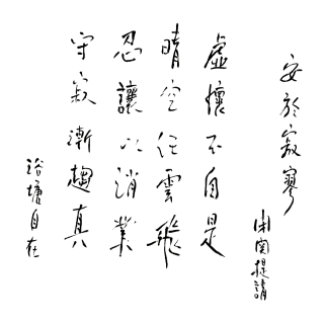 安於寂寥
閑閑提請
虛懷不自是
晴空任雲飛
忍讓以消業
守寂漸趨真
浴塘自在